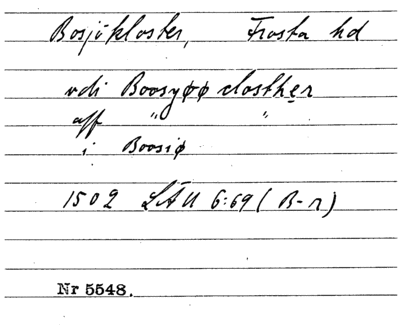 Bosjökloster, Frosta hd
vdi Boosyøø closther
aff " "
i Boosiø
1502 LÄU 6:69 (B-r)
Nr 5548.